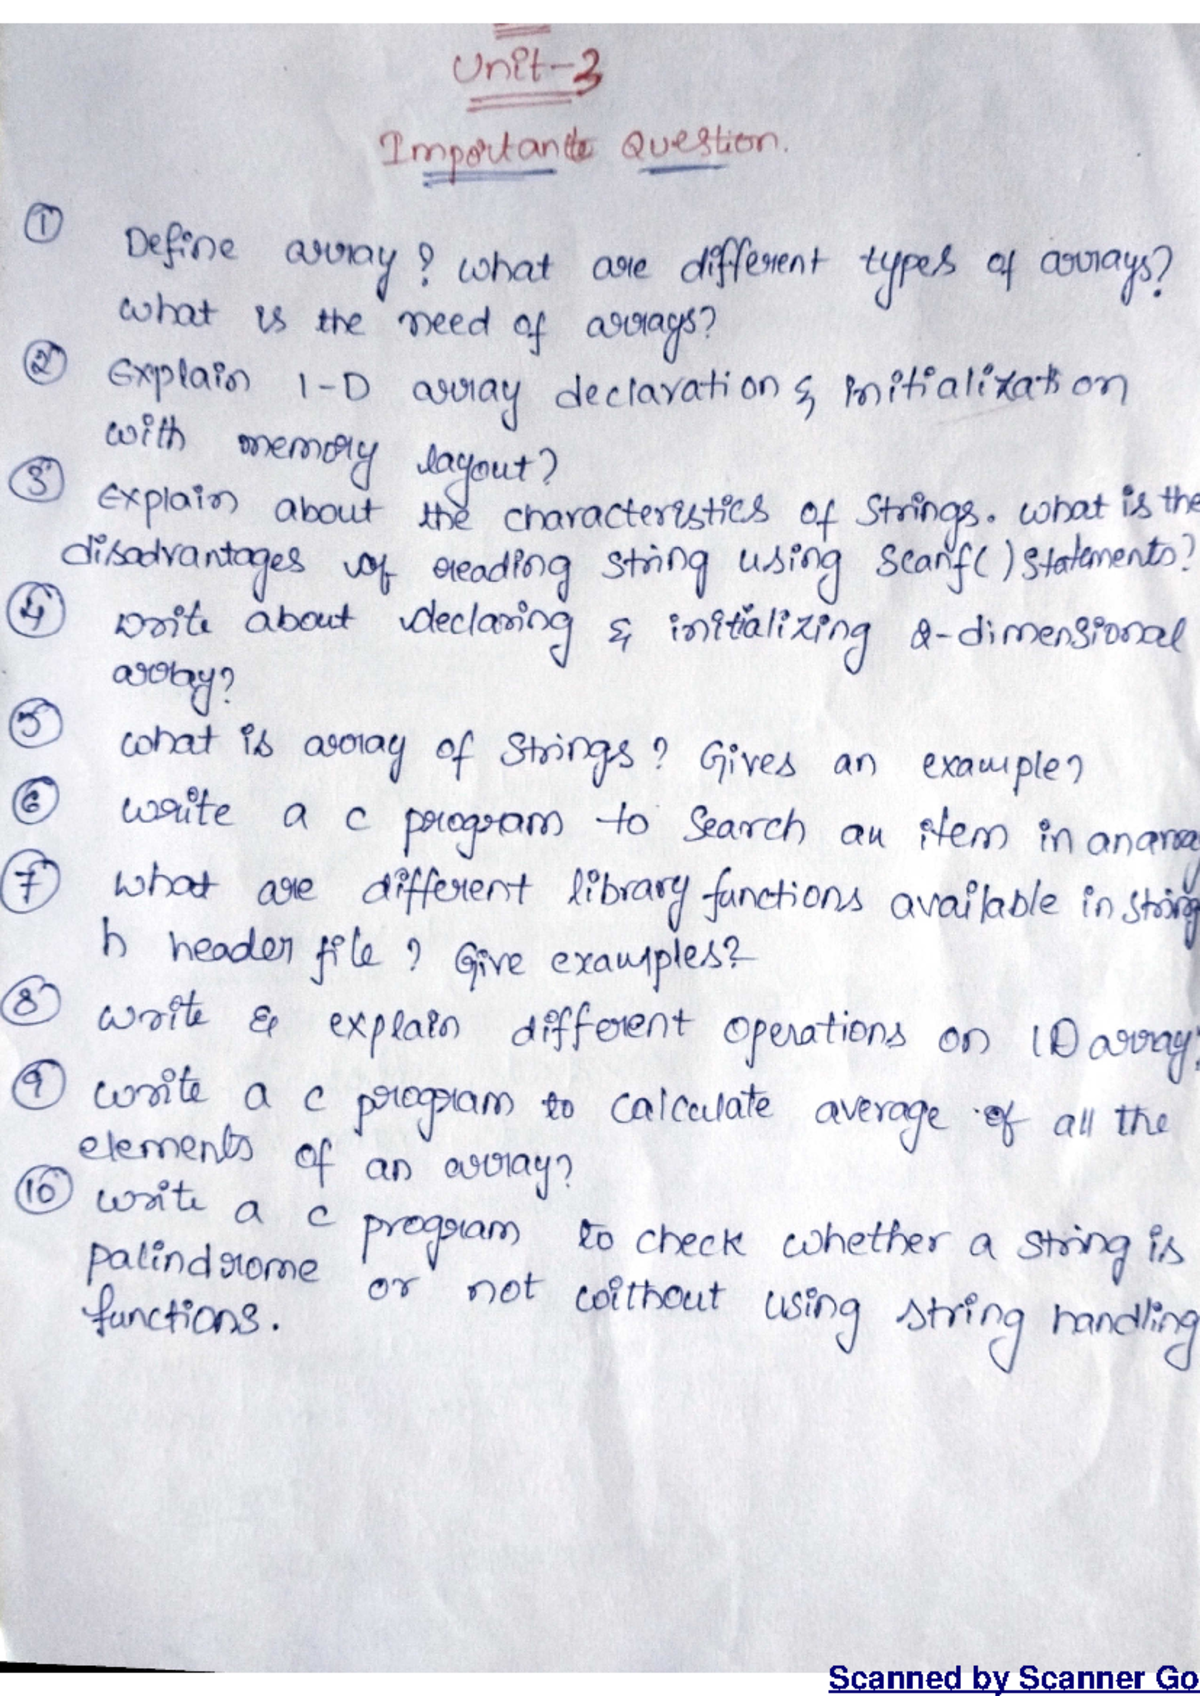 Unit-3
Importante Question.
① Define array? what are different types of arrays?
what is the need of arrays?
② Explain 1-D array declaration & initialization
with memory layout?
③ Explain about the characteristics of Strings. what is the
disadvantages of reading string using Scanf() statements?
④ write about declaring & initializing 2-dimensional
array?
⑤ what is array of Strings? Gives an example?
⑥ write a c program to Search an item in an array
⑦ what are different library functions available in string
h header file? Give examples?
⑧ write & explain different operations on 1D array?
⑨ write a c program to calculate average of all the
elements of an array?
⑩ write a c program to check whether a string is
palindrome or not without using string handling
functions.
Scanned by Scanner Go